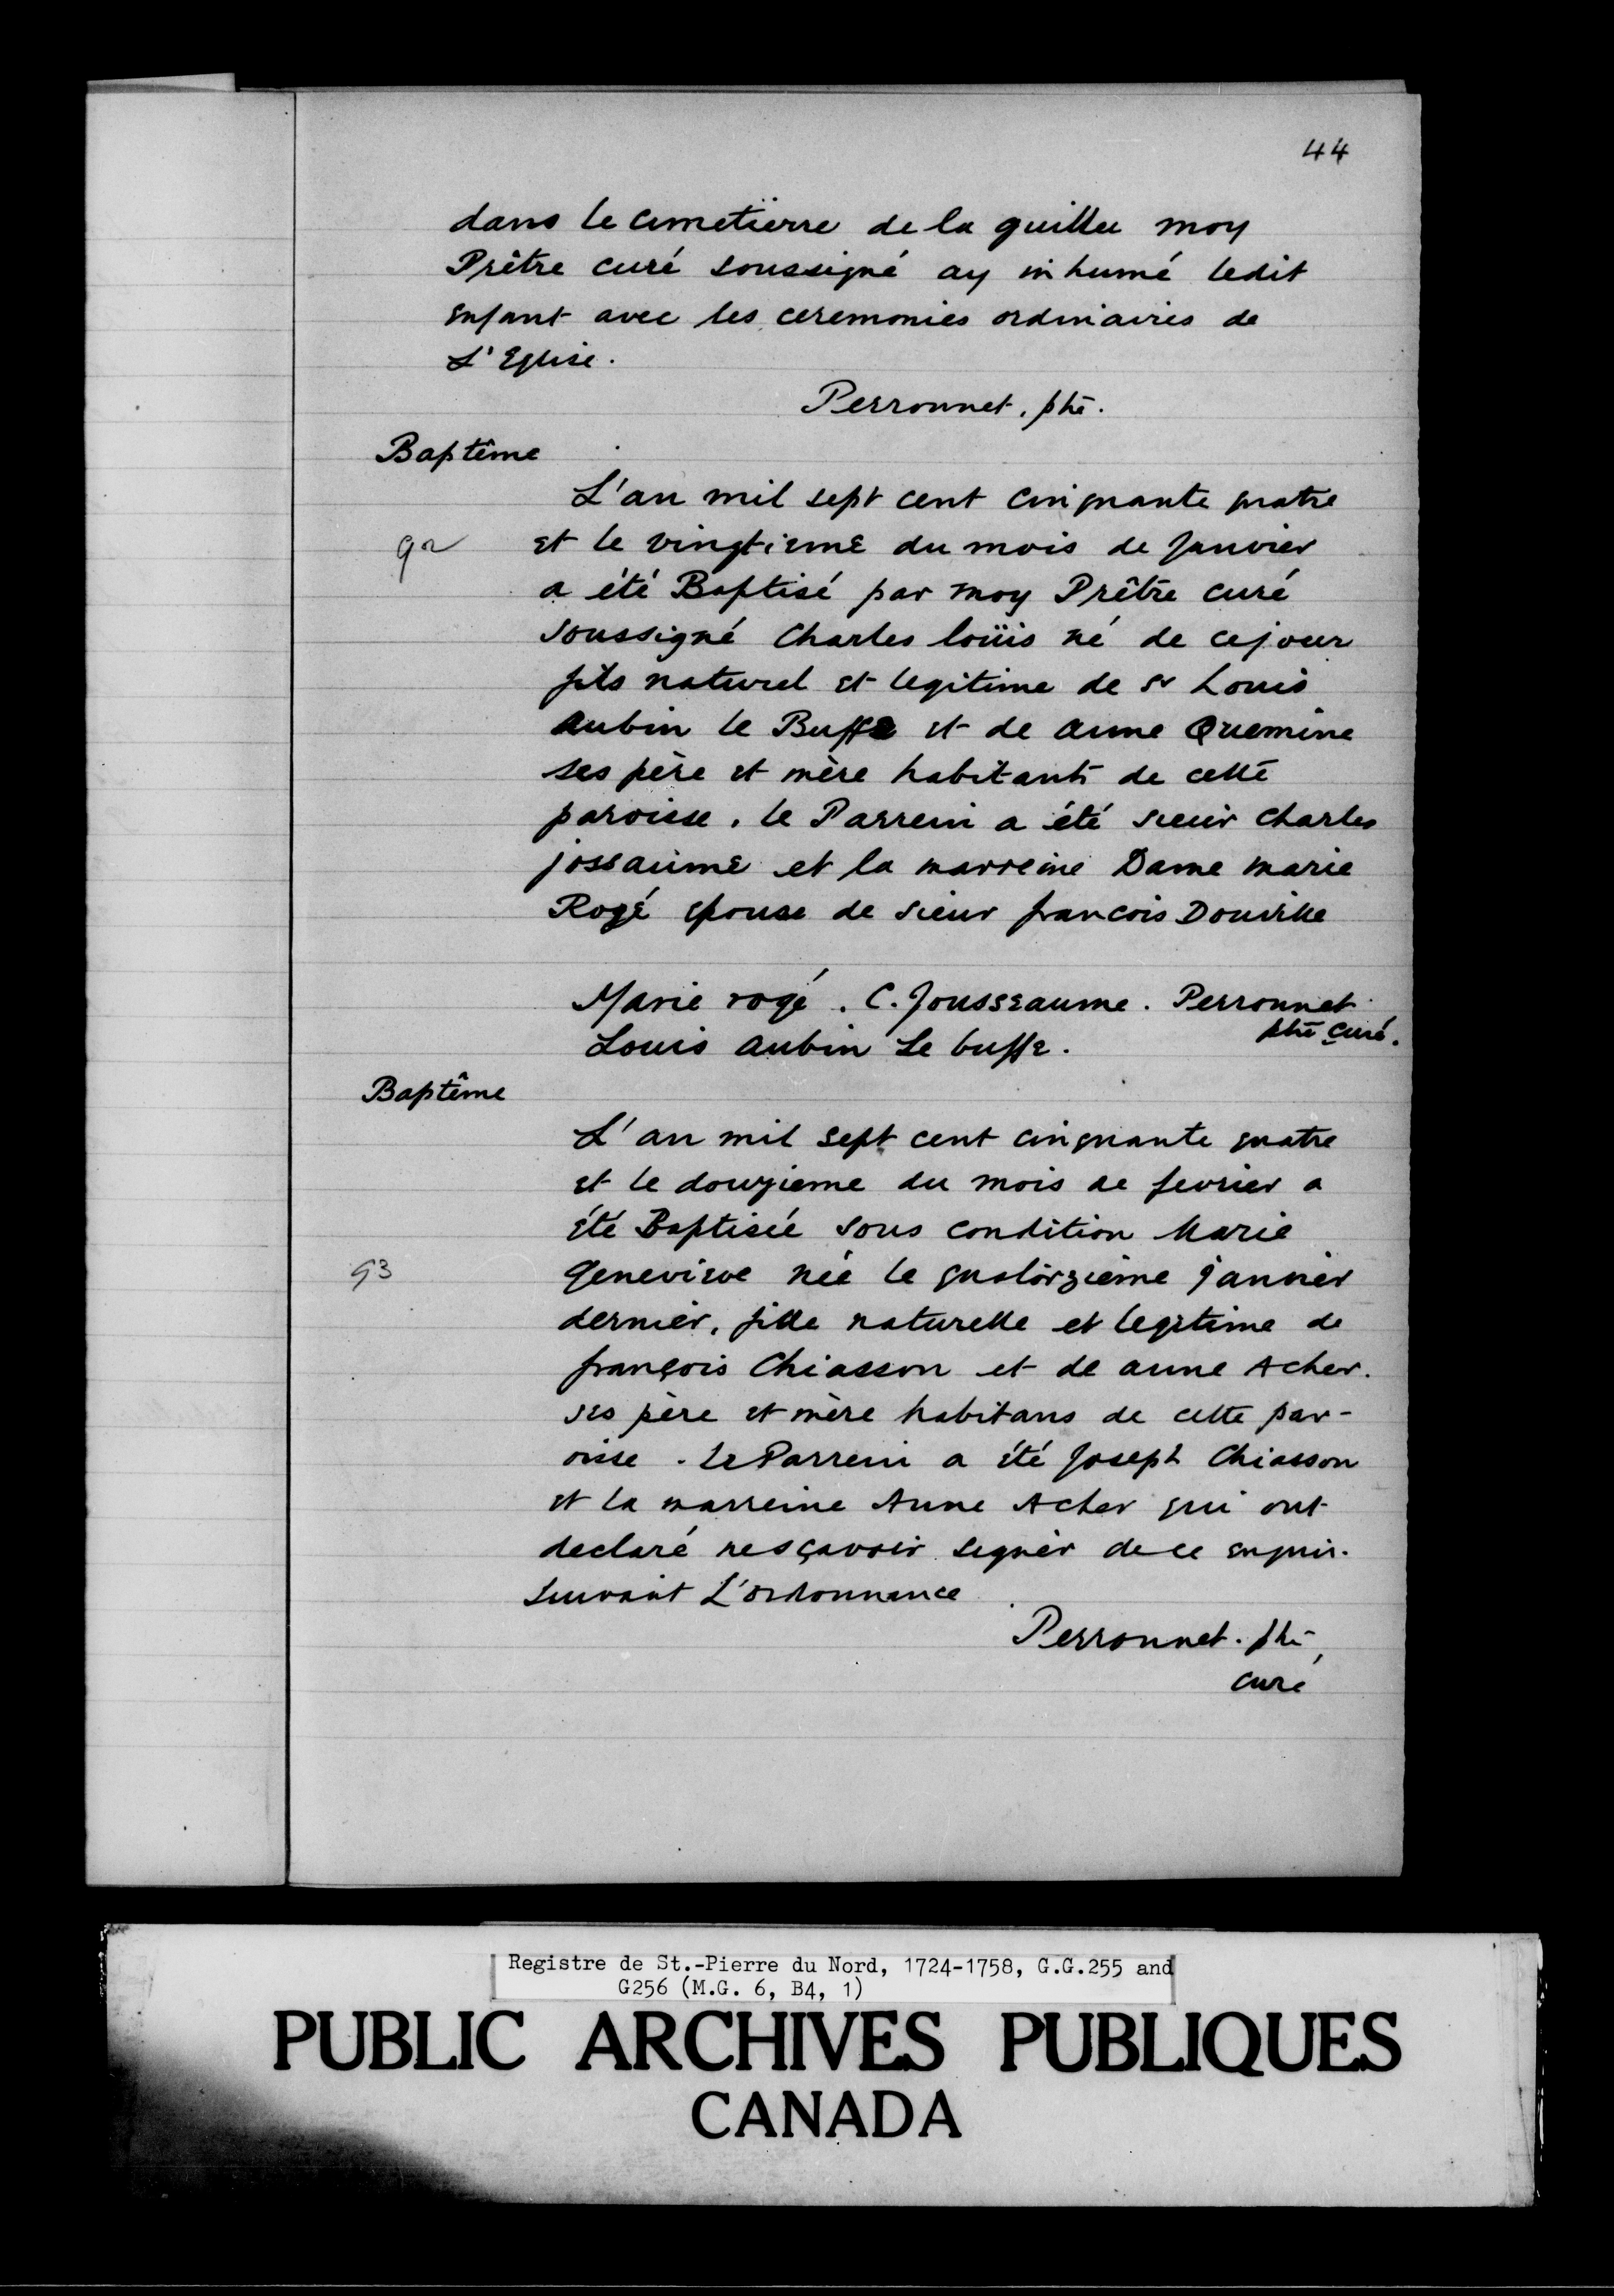 44
dans le cimetierre de la quillee moy
Prêtre curé soussigné ay inhumé ledit
enfant avec les ceremonies ordinaires de
L'Eglise.
Perronnet, ptre.
Baptême
L'an mil sept cent cinquante quatre
92 et le vingtieme du mois de Janvier
a été Baptisé par moy Prêtre curé
soussigné Charles loüis né de cejour
fils naturel et legitime de Sr Louis
aubin le Buffe et de anne Quemine
ses père et mère habitants de cette
paroisse. le Parrein a été sieur Charles
jossaume et la marreine Dame marie
Rogé epouse de sieur francois Douville
Marie rogé. C. Jousseaume. Perronnet
ptre curé.
Louis aubin Le buffe.
Baptême
L'an mil sept cent cinquante quatre
et le douzieme du mois de fevrier a
été Baptisée sous condition Marie
93 Genevieve née le quatorzieme janvier
dernier, fille naturelle et legitime de
françois Chiasson et de anne Acher.
ses père et mère habitans de cette par-
oisse. le Parrein a été Joseph Chiasson
et la marreine Anne Acher qui ont
declaré nesçavoir signer de ce enquis.
suivant L'ordonnance
Perronnet. ptre,
curé
Registre de St.-Pierre du Nord, 1724-1758, G.G.255 and
G256 (M.G. 6, B4, 1)
PUBLIC ARCHIVES PUBLIQUES
CANADA